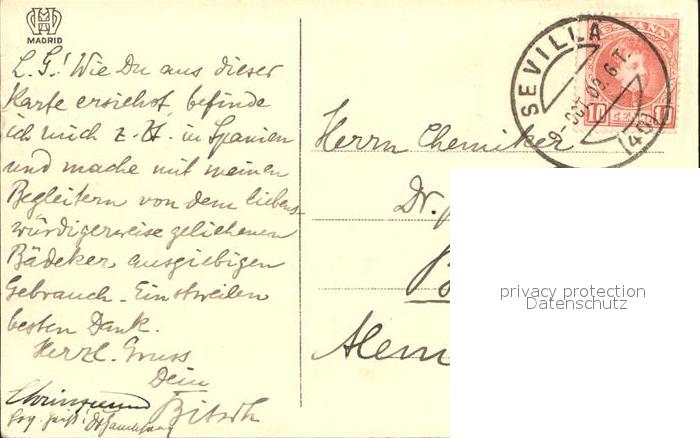 MADRID
L. G.! Wie Du aus dieser
Karte ersiehst, befinde
ich mich z. Zt. in Spanien
und mache mit meinen
Begleitern von dem liebens-
würdigerweise geliehenen
Bädeker ausgiebigen
Gebrauch. Einstweilen
besten Dank.
Herzl. Gruss
Dein
Bitsch
ESPAÑA
10 CENT 10
SEVILLA
9- OCT 09. 6 T.
Herrn Chemiker
Dr.
Alem
privacy protection
Datenschutz